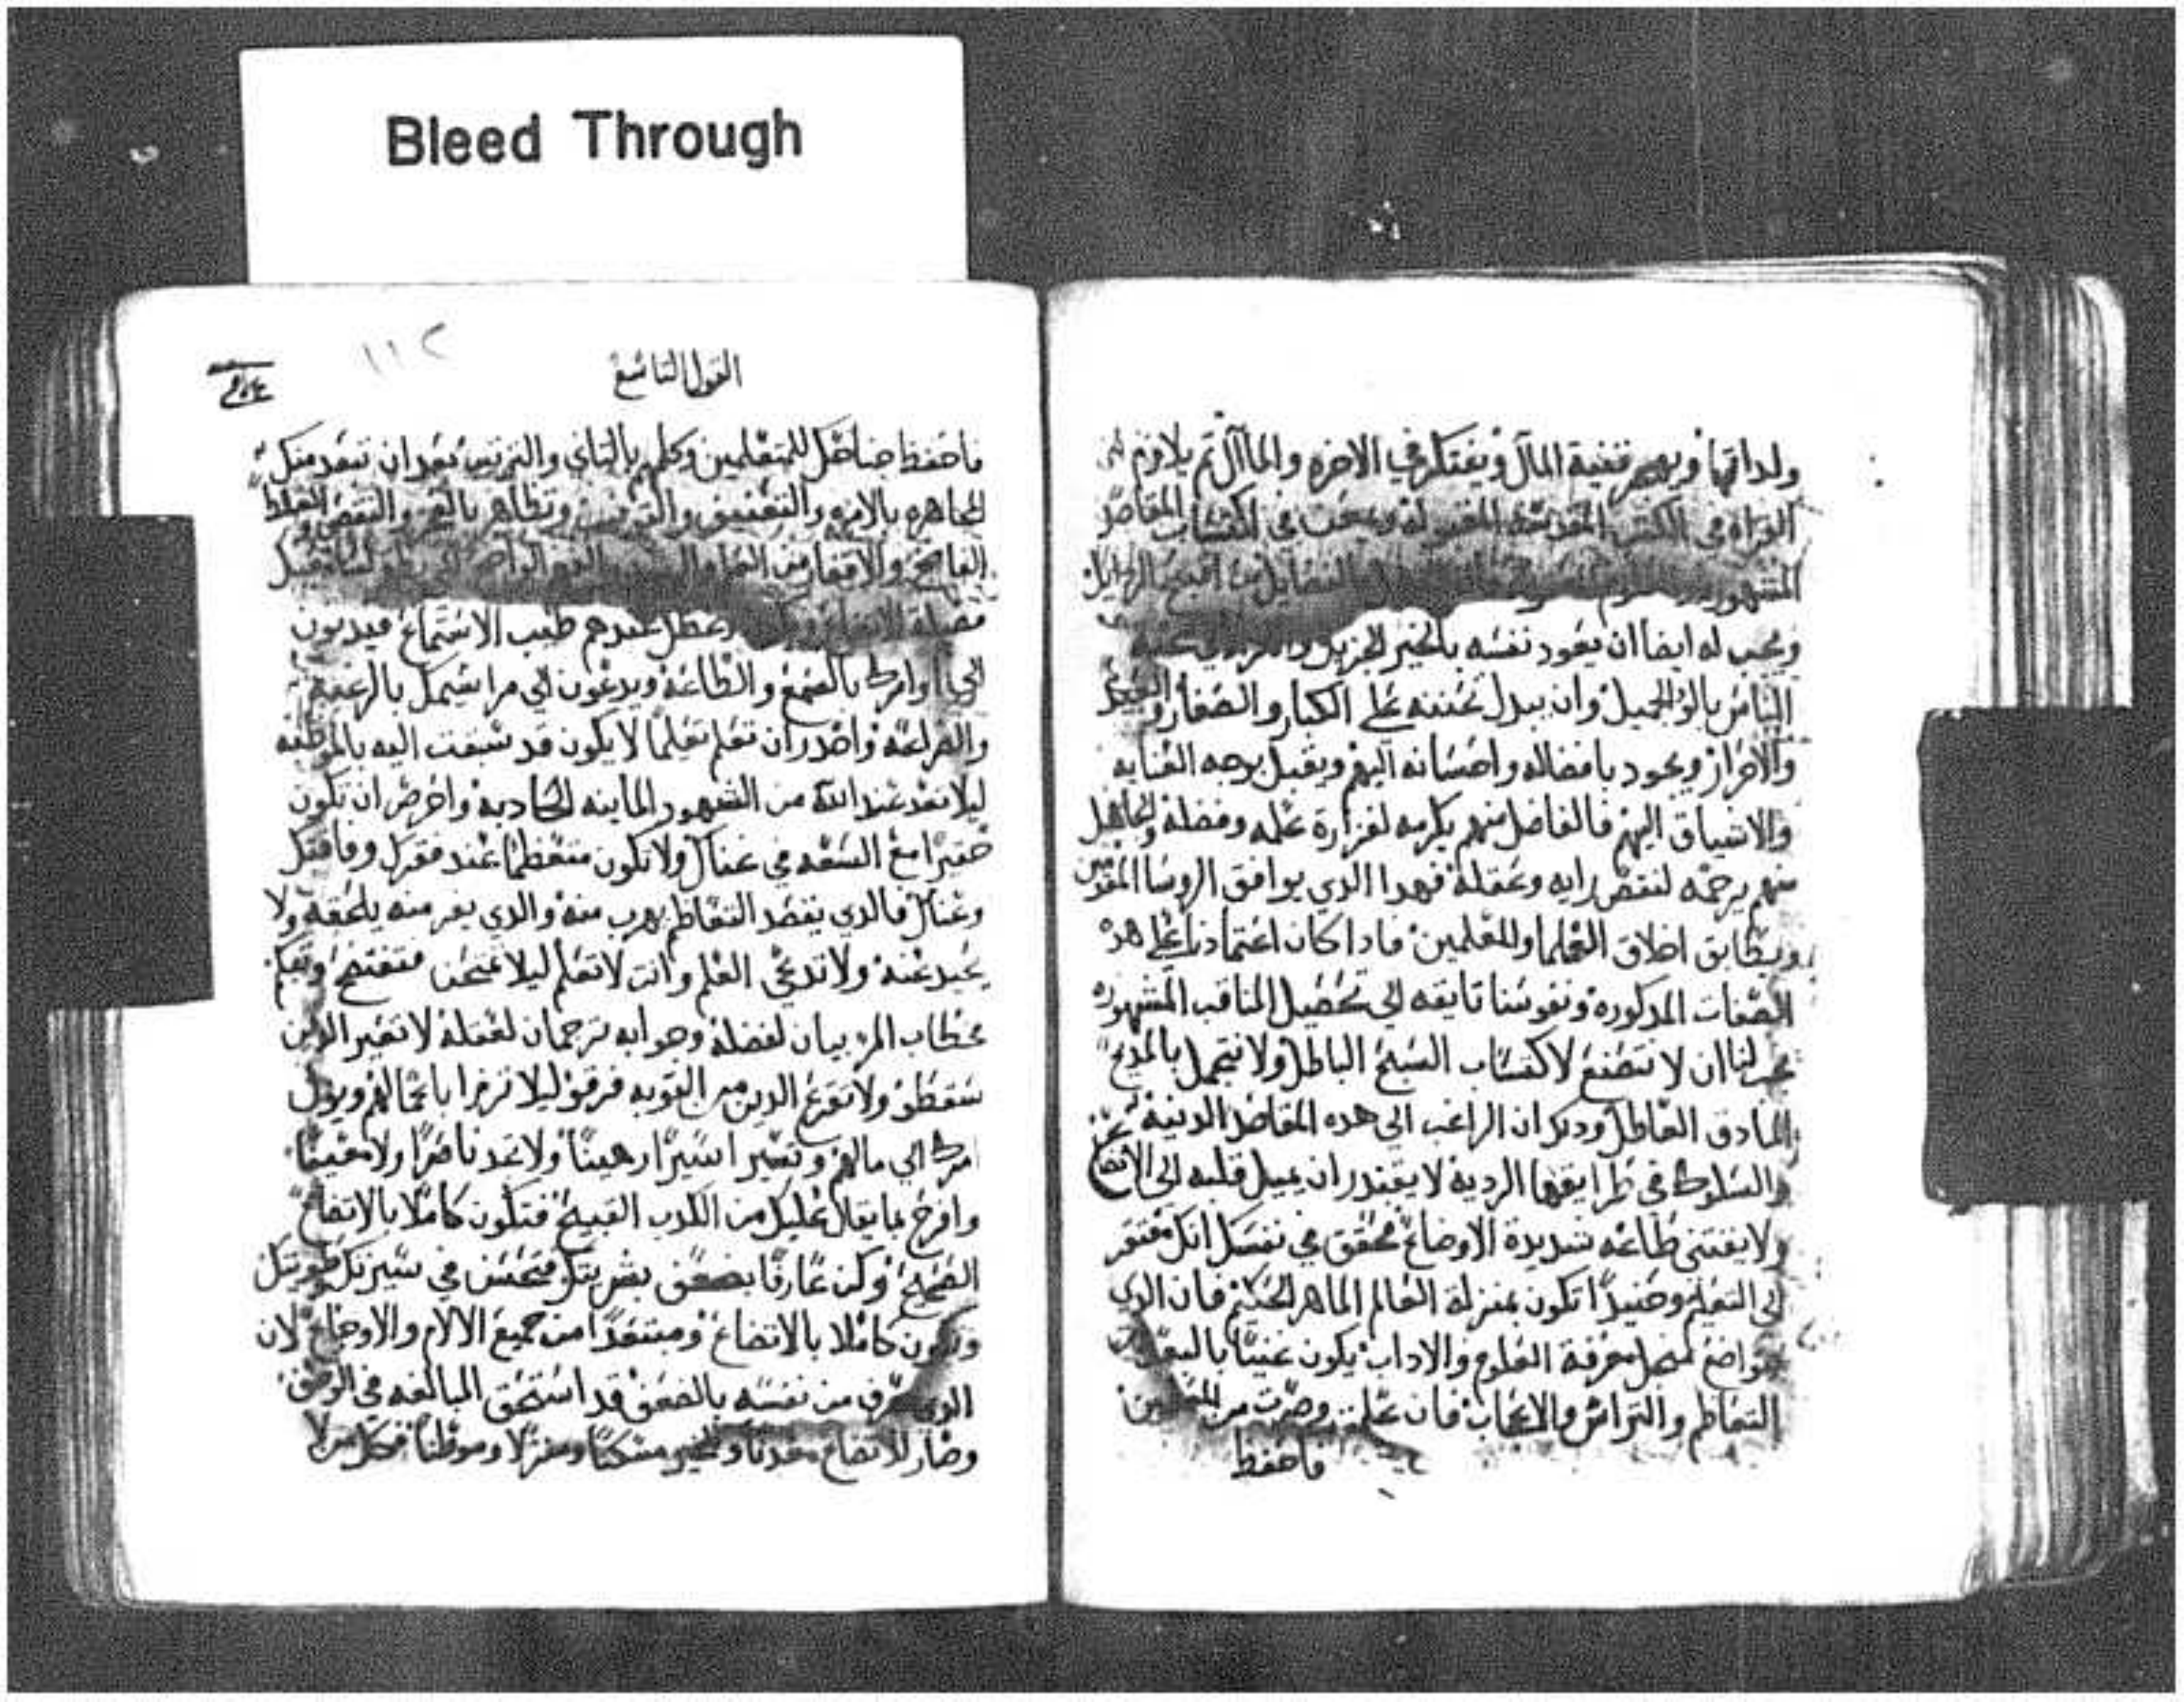 Bleed Through
ولداتها ويهجر قنية المال ويفتكر في الاخره والمآل ثم يلازم
القراه في الكتب المقدسه في اكتساب المقاصد
ويجب له ايضا ان يعود نفسه بالخير الجزيل
الناس بالود الجميل وان يبدل تحننه على الكبار والصغار والعبيد
والاحرار ويجود بافضاله واحسانه اليهم ويقبل بوجه العنايه
والاشتياق اليهم فالفاضل منهم يكرمه لغزارة علمه وفضله والجاهل
منهم يرحمه لنقص رايه وعقله فهدا الدي يوافق الروسا المقدمين
ويطابق اخلاق العلما والمعلمين فادا كان اعتمادنا على هده
الصفات المدكوره ونفوسنا تايقه الى تحصيل المناقب المشهوره
يجب لنا ان لا نتصنع لاكتساب السبح الباطل ولا نتجمل بالمديح
المادق العاطل ودلك ان الراغب الى هده المقاصد الدنيه
والسلوك في طرايقها الرديه لا يقتدر ان يميل قلبه الى الاتضاع
ولا يقتني طاعه شديدة الاوضاع فحقق في نفسك انك مفتقر
الى التعليم وحنيدا تكون بمنزلة العالم الماهر الحكيم فان الدي
يتواضع لتحصل معرفة العلوم والاداب يكون غنيا بالبعد من
التعاظم والتراس والاعجاب فان علمت وصرت من المعلمين
فاحفظ
١١٢
القول التاسع
فاحفظ جناحك للمتعلمين وكلمهم بالتاني والترتيب بعد ان تبعد منك
بالامره والتعنيف والنقص والغلط
عندهم طيب الاستماع فيدبون
الى اوامرك بالسمع والطاعة ويدعون الى مراسيمك بالرغبه
والضراعه واحدر ان تعلم تعليما لا يكون قد سبقت اليه بالموظبه
ليلا تعد عند الله من الشهود الماينه الكادبه واحرص ان تكون
حقيرا مع السعه في غناك ولا تكون متعظما عند فقرك وفاقتك
وعناك فالدي يقصد التعاظم يهرب منه والدي يفر منه يلحقه ولا
يحيد عنه ولا تدعي العلم وانت لا تعلم ليلا تمتحن فتفتضح
فخطاب المر بيان لفضله وجوابه ترجمان لعقله لا تعير الدين
سقطو ولا تقرع الدين من التوبه فرقو ليلا تزرا باعمالهم ويول
امرك الى مالهم وتصير اسيرا رهينا ولا تجد ناصرا ولا معينا
وافرح بما يقال عليك من الكدب القبيح فتكون كاملا بالاتضاع
الصحيح وكن عارفا بضعف بشريتك فتحسن في سيرتك وطويتك
وتكون كاملا بالاتضاع ومبتعدا من جميع الالام والاوجاع لان
الدي يعرف من نفسه بالضعف قد استحق المبالغه في الوصف
وصار للاتضاع معدنا وللخير مسكنا ومنزلا وموطنا فكل من لا